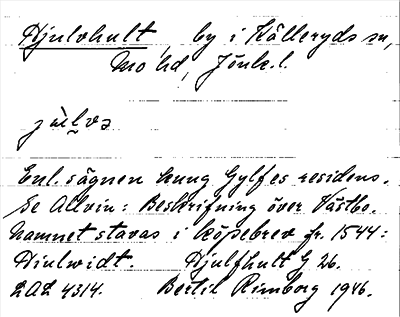 Hjulvhult, by i Kålleryds sn,
Mo hd, Jönk.l.
jùlvə
Enl. sägnen kung Gylfes residens.
Se Allvin: Beskrifning över Västbo.
Namnet stavas i köpebrev fr. 1544:
Hiulwidt. Hjulfhult G 26.
LAL 4314. Bertil Rimborg 1946.